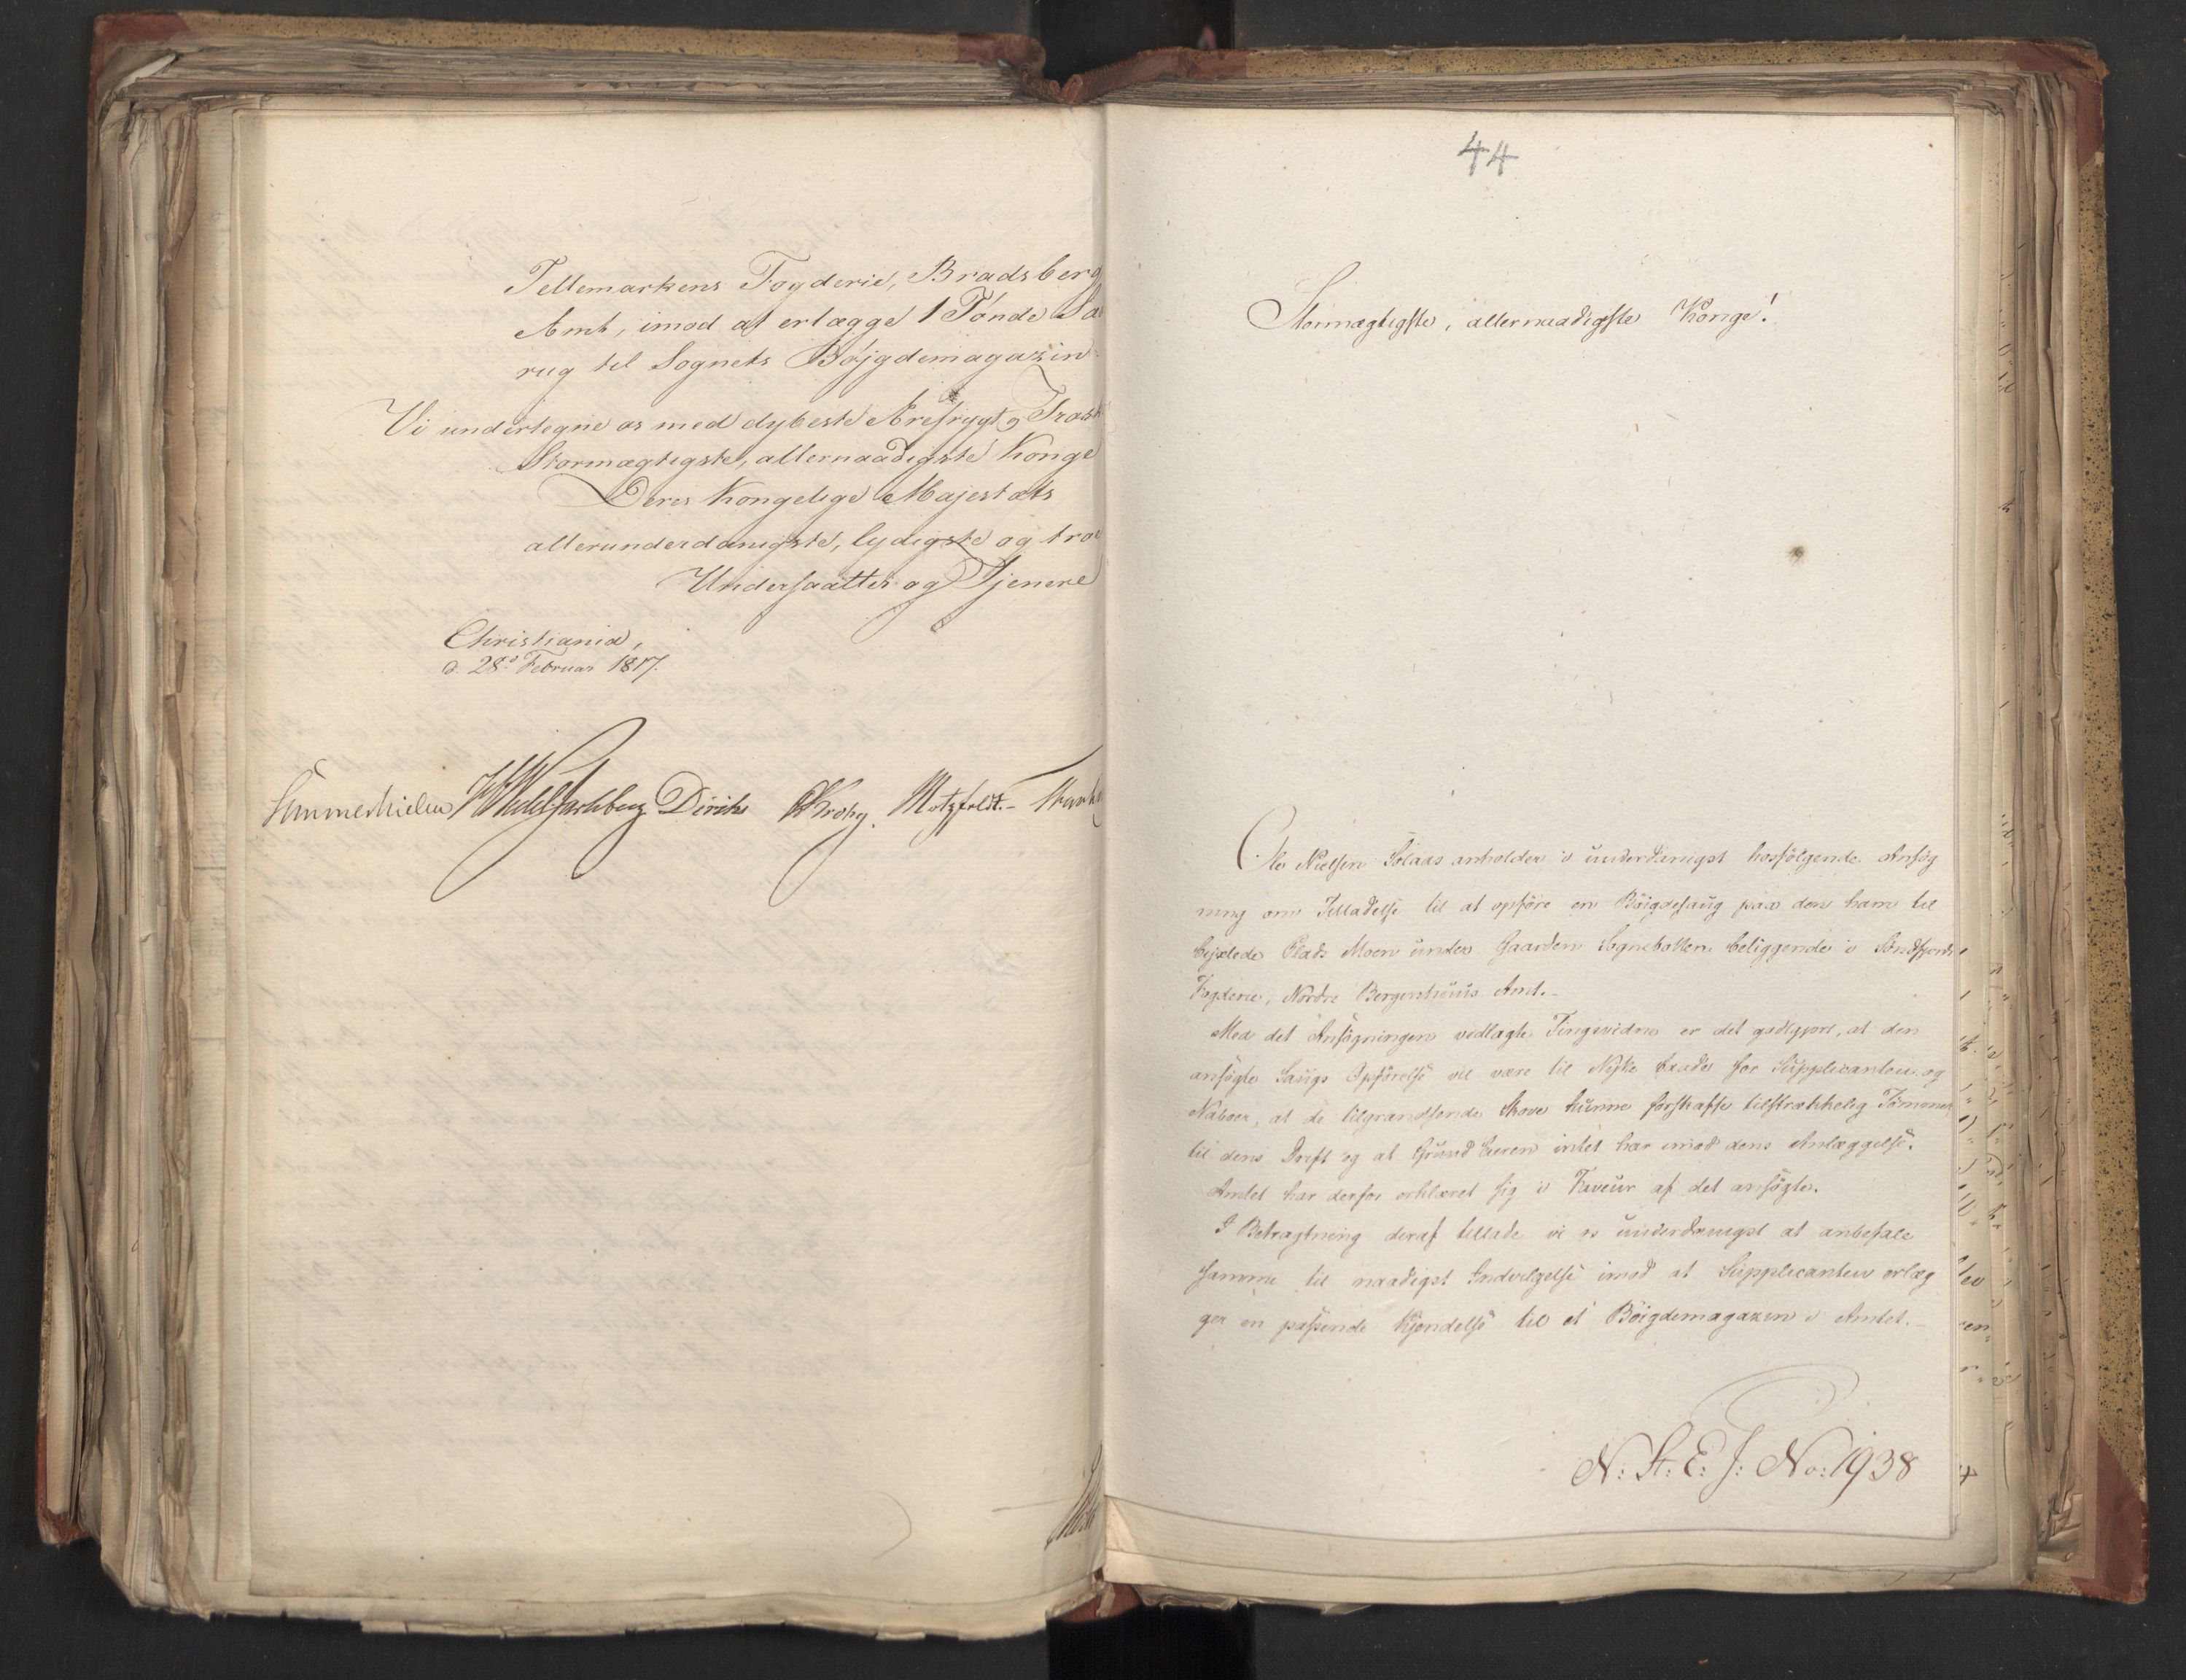 Tellemarkens Fogderie, Bradsberg
Amt, imod at erlægge 1 Tønde Sæ
rug til Sognets Bøjgdemagazin
Vi undertegne os med dybeste Ærefrygt og Trosk
Stormægtigste, allernaadigste Konge
Deres Kongelige Majestæts
allerunderdanigste, lydigste og troe
Undersaatter og Tjenere
Christiania,
d. 28d Februar 1817.
Sommerhielm HWedelJarlsberg Diriks CKrohg. Motzfeldt.-
44
Stormægtigste, allernaadigste Konge!
Ole Nielsen Solaas anholder i underdanigst hosfølgende Ansøg
ning om Tilladelse til at opføre en Bøigdesaug paa den ham til
bejxlede Plads Moen under Gaarden Sognebotten beliggende i Søndfjords
Fogderie, Nordre Bergenshuus Amt.-
Med det Ansøgningen vedlagte Tingsvidne er det godtgjort, at den
ansøgte Saugs Opførelse vil være til Nytte baade for Supplicanten og
Naboer, at de tilgrændsende Skove kunne forskaffe tilstrækkelig Tømmer
til dens Drift og at Grund Eieren intet har imod dens Anlæggelse.
Amtet har derfor erklæret sig i Faveur af det ansøgte.
I Betragtning deraf tillade vi os underdanigst at anbefale
samme til naadigst Indvilgelse imod at Supplicanten erlæg
ger en passende Kjendelse til et Bøigdemagazin i Amtet.-
N: St: E: J: No: 1938